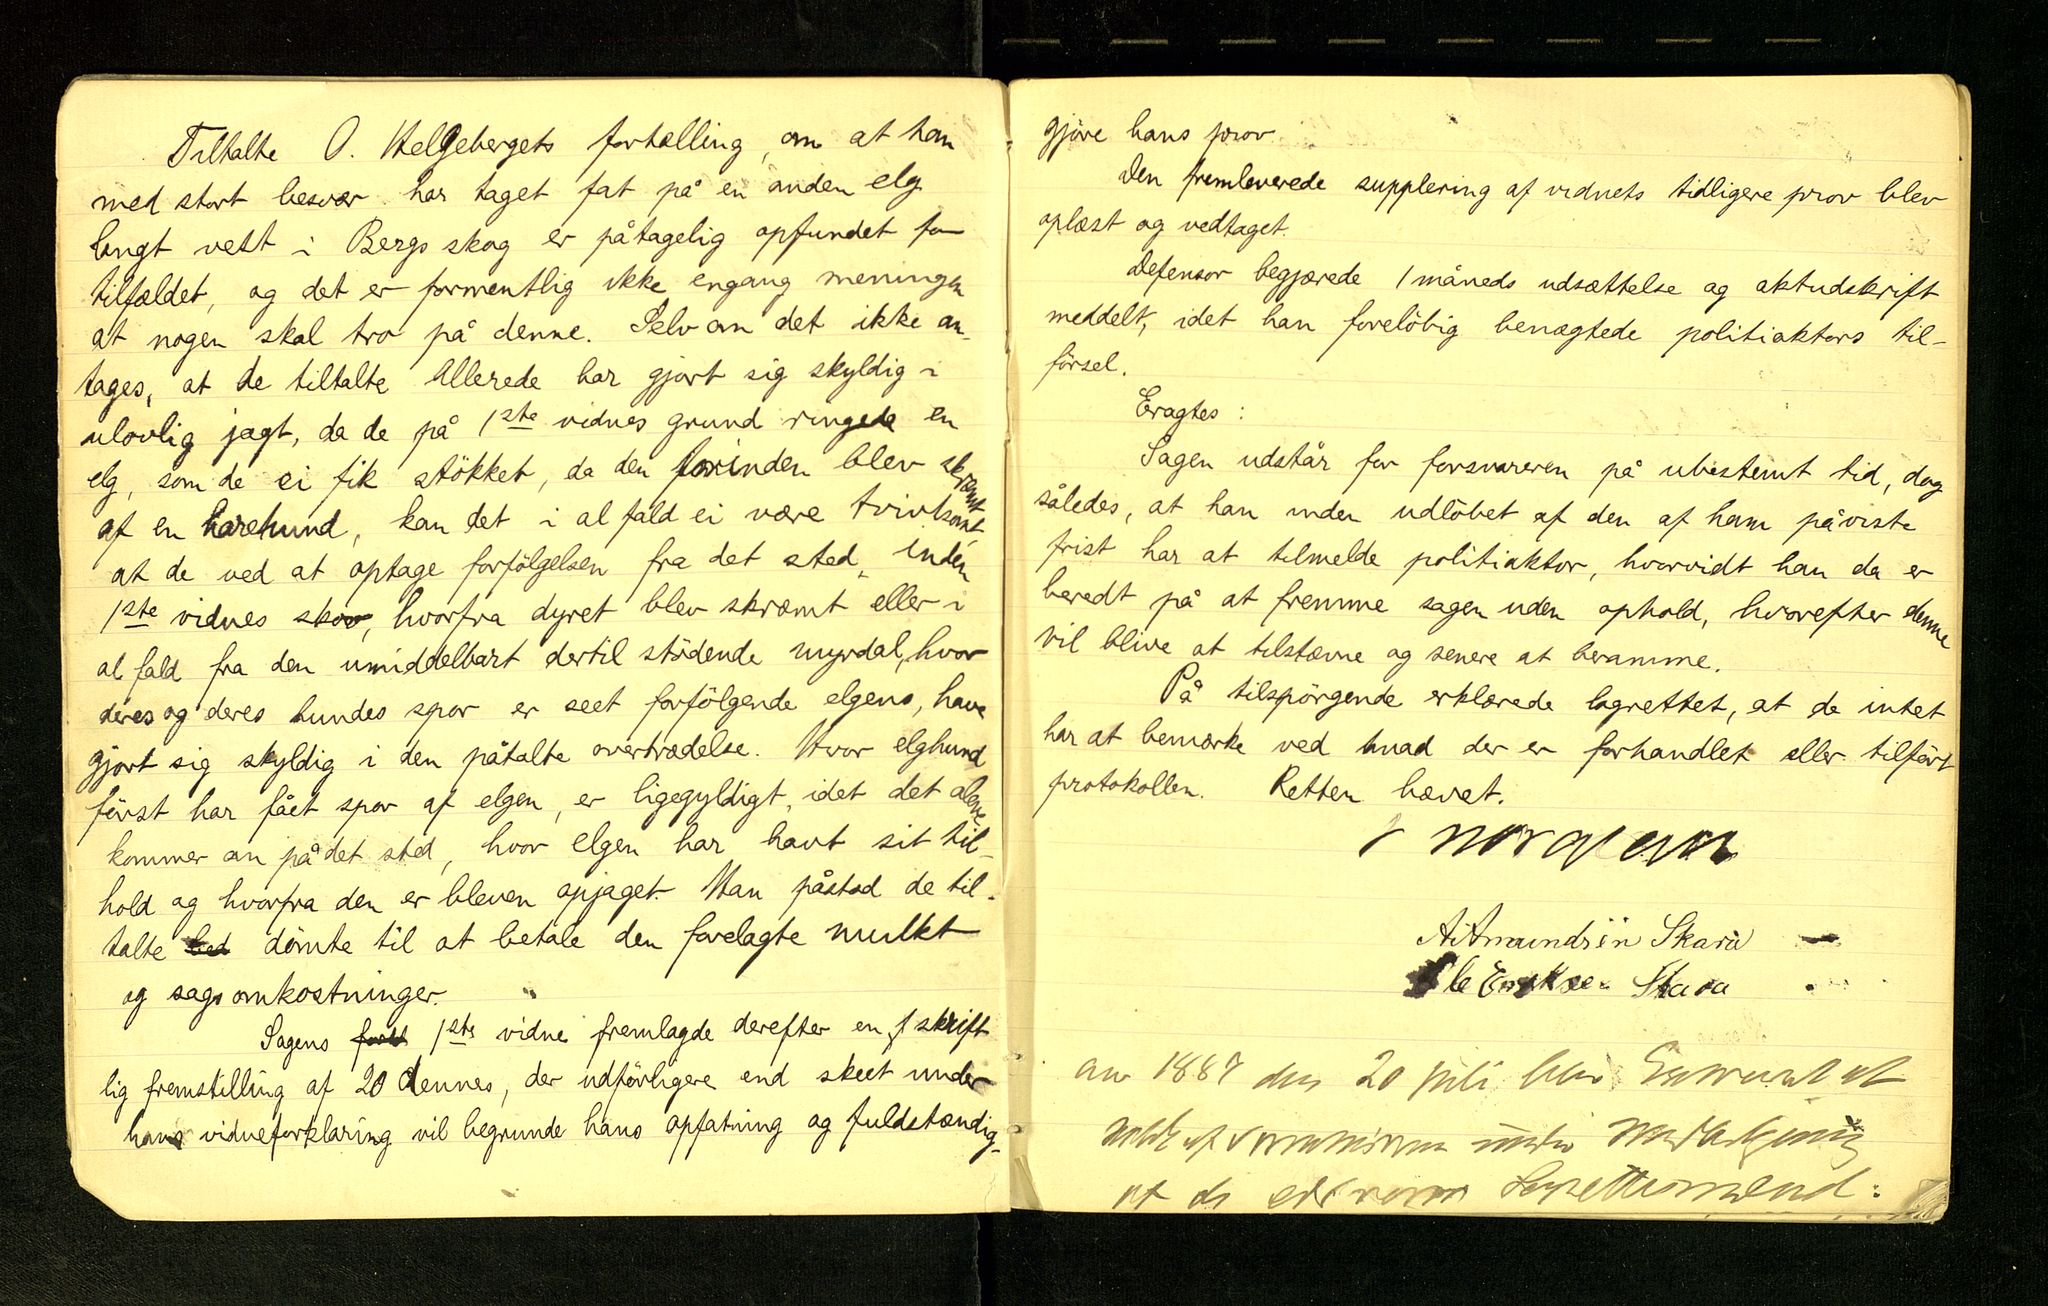 Tiltalte O. Helgebergets fortælling, om at han
med stort besvær har taget fat på en anden elg
langt vest i Bergs skog er påtagelig opfundet for
tilfældet, og det er formentlig ikke engang meningen
at nogen skal tro på denne. Selv om det ikke an-
tages, at de tiltalte allerede har gjort sig skyldig i
ulovlig jagt, da de på 1ste vidnes grund ringede en
elg, som de ei fik stökket, da den forinden blev skræmt
af en harehund, kan det i al fald ei være tvivlsomt,
at de ved at optage forfölgelsen fra det sted, inden
1ste vidnes skov, hvorfra dyret blev skræmt eller i
al fald fra den umiddelbart dertil stödende myrdal, hvor
deres og deres hundes spor er seet forfölgende elgens, have
gjort sig skyldig i den påtalte overtrædelse. Hvor elghund
först har fået spor af elgen, er ligegyldigt, idet det alene
kommer an på det sted, hvor elgen har havt sit til-
hold og hvorfra den er bleven opjaget. Han påstod de til-
talte dömte til at betale den forelagte mulkt
og sagsomkostninger.
Sagens 1ste vidne fremlagde derefter en skrift
lig fremstilling af 20 dennes, der udförligere end skeet under
hans vidneforklaring vil begrunde hans opfatning og fuldstændig-
gjöre hans prov.
Den fremleverede supplering af vidnets tidligere prov blev
oplæst og vedtaget.
Defensor begjærede 1 måneds udsættelse og aktudskrift
meddelt, idet han forelöbig benægtede politiaktors til-
försel.
Eragtes:
Sagen udstår for forsvareren på ubestemt tid, dog
således, at han inden udlöbet af den af ham påviste
frist har at tilmelde politiaktor, hvorvidt han da er
beredt på at fremme sagen uden ophold, hvorefter denne
vil blive at tilstævne og senere at beramme.
På tilspörgende erklærede lagrettet, at de intet
har at bemærke ved hvad der er forhandlet eller tilfört
protokollen. Retten hævet.
A. Amundsen Skara
Ole Eriksen Skara
1887 den 20 juli blev
at
af under
at de